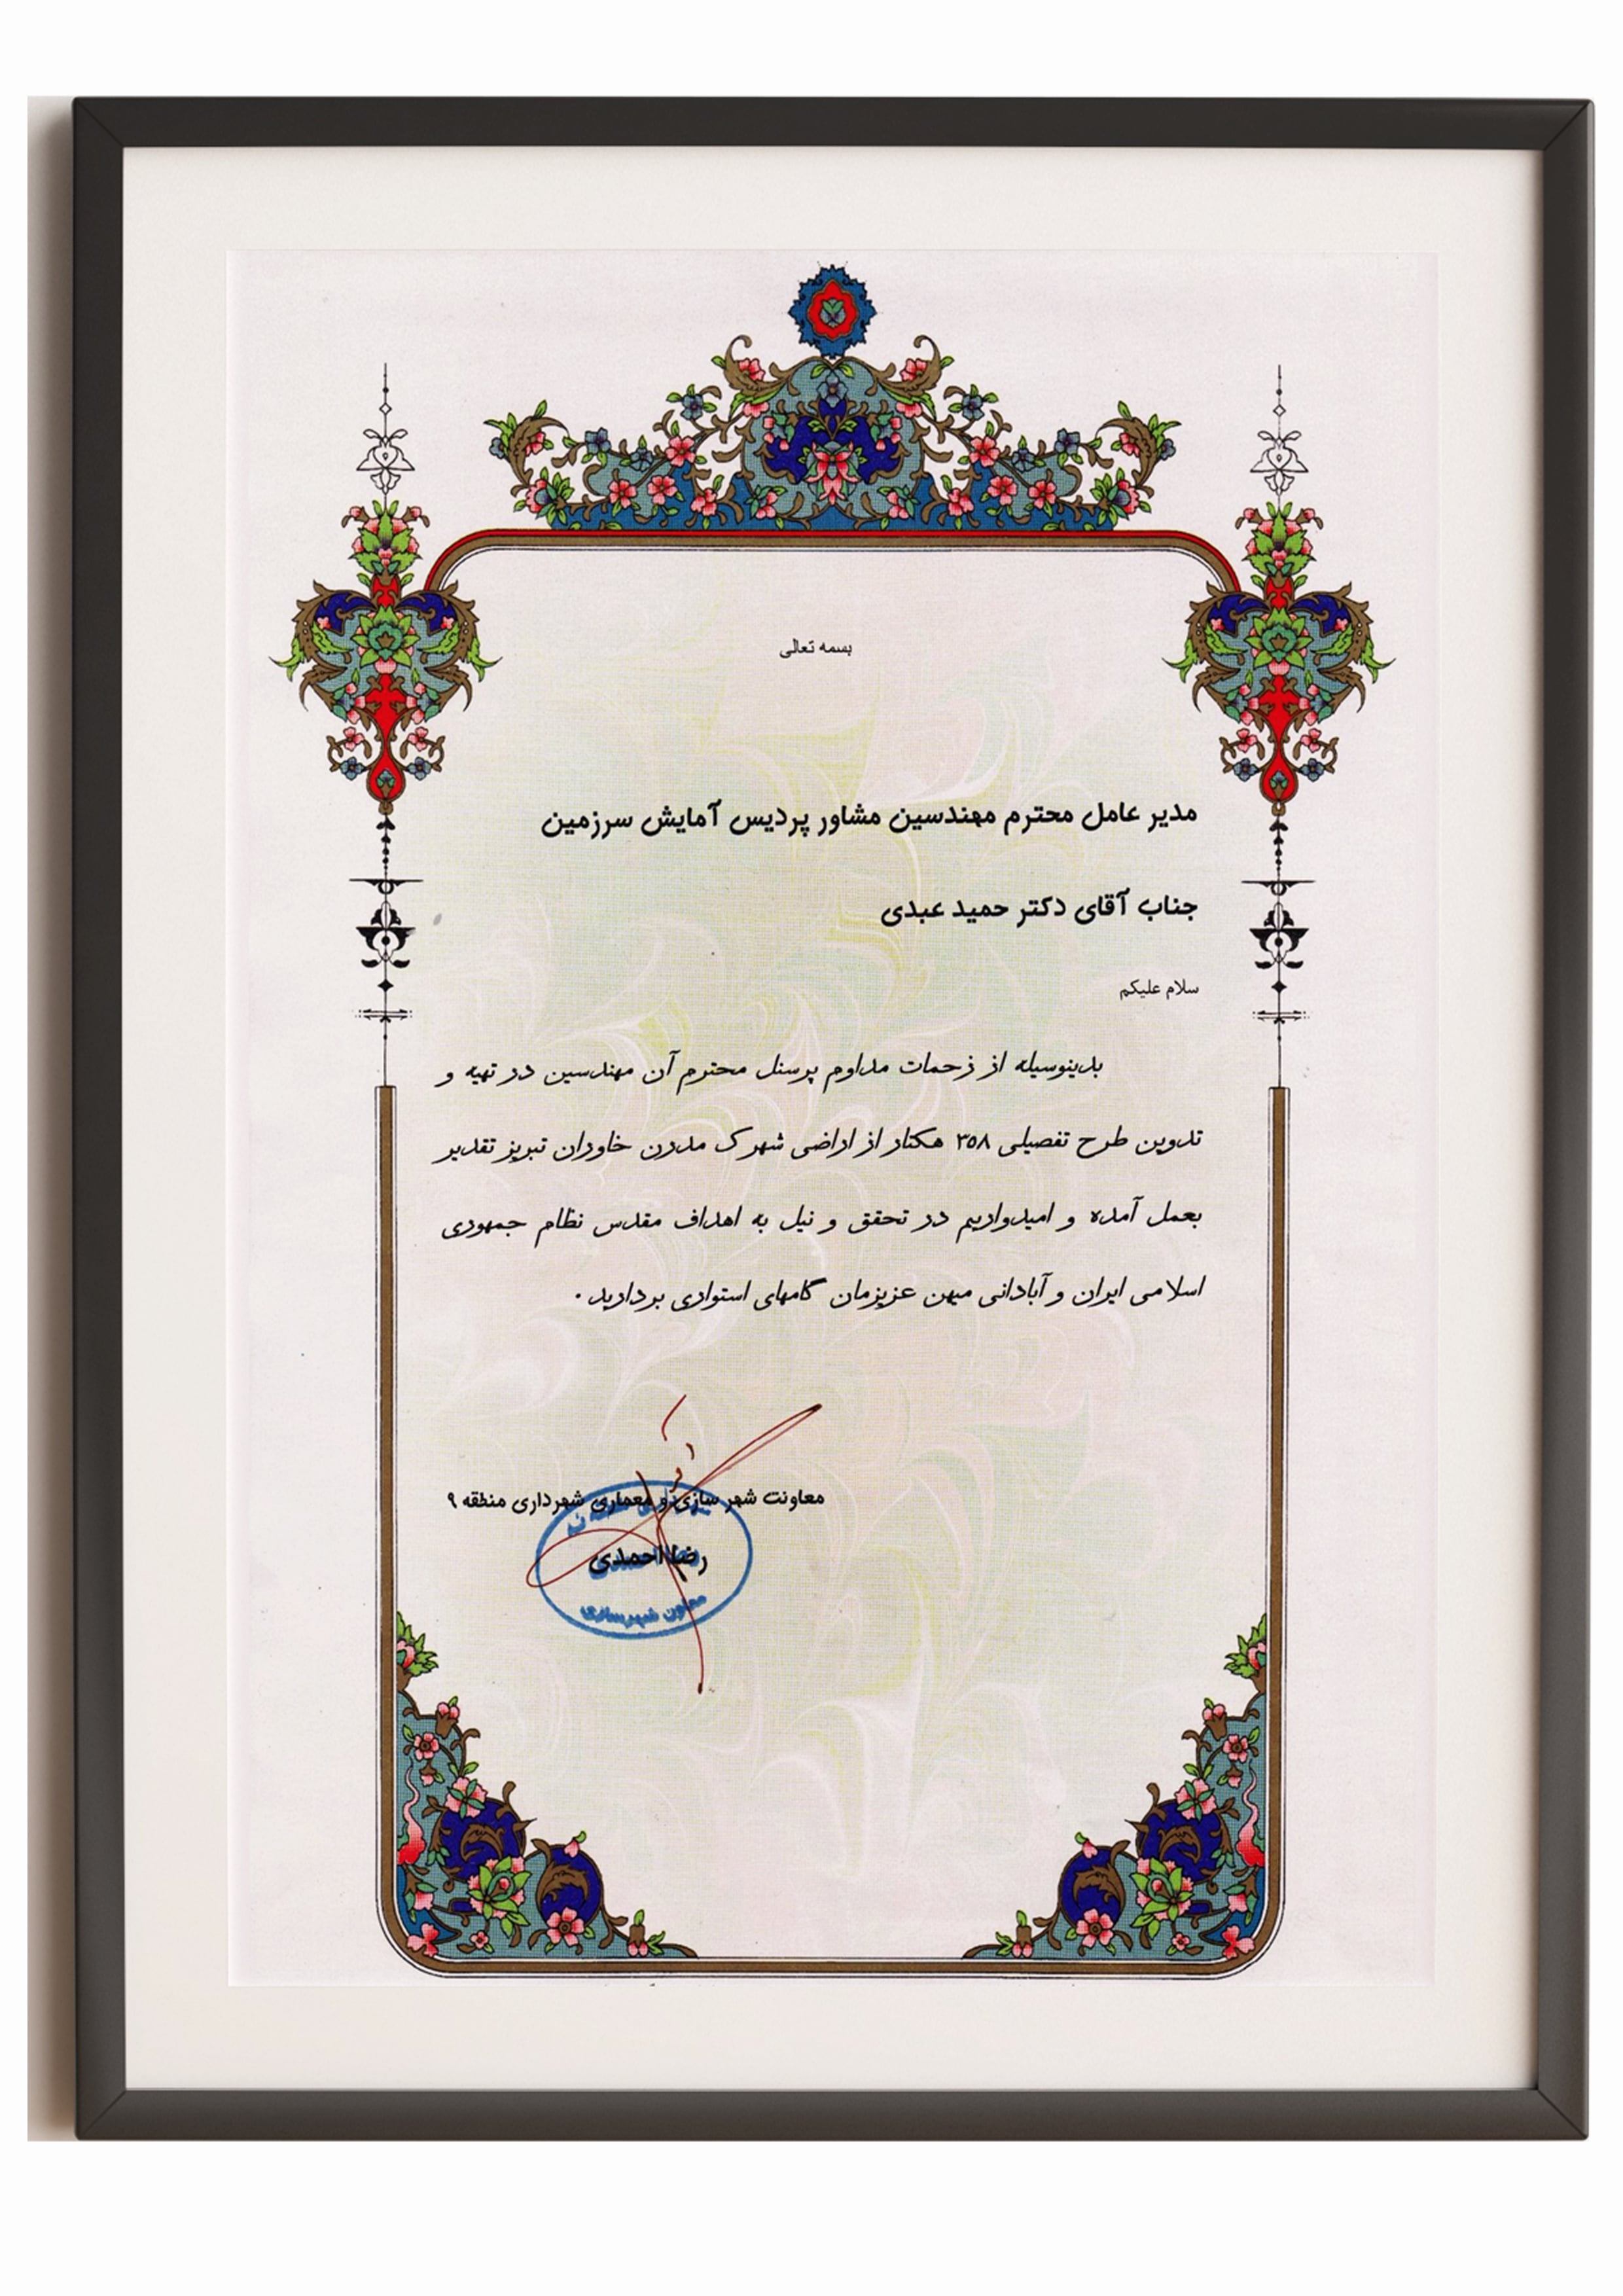 بسمه تعالی
مدیر عامل محترم مهندسین مشاور پردیس آمایش سرزمین
جناب آقای دکتر حمید عبدی
سلام علیکم
بدینوسیله از زحمات مداوم پرسنل محترم آن مهندسین در تهیه و
تدوین طرح تفصیلی ۳۵۸ هکتار از اراضی شهرک مدرن خاوران تبریز تقدیر
بعمل آمده و امیدواریم در تحقق و نیل به اهداف مقدس نظام جمهوری
اسلامی ایران و آبادانی میهن عزیزمان گامهای استواری بردارید.
معاونت شهرسازی و معماری شهرداری منطقه ۹
رضا احمدی
معاون شهرسازی